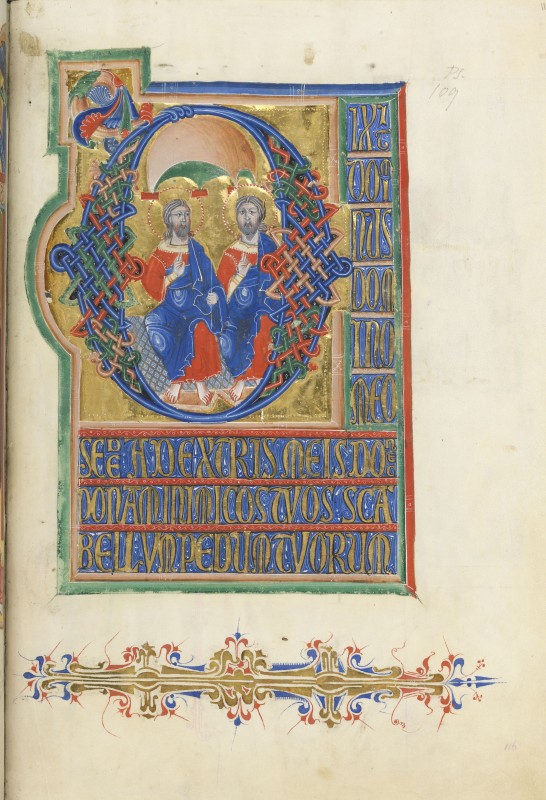 Ps.
109
DIXIT
DOMI
NUS
DOM
INO
MEO
SEDE A DEXTRIS MEIS DONEC
PONAM INIMICOS TVOS SCA
BELLVM PEDUM TVORUM
116